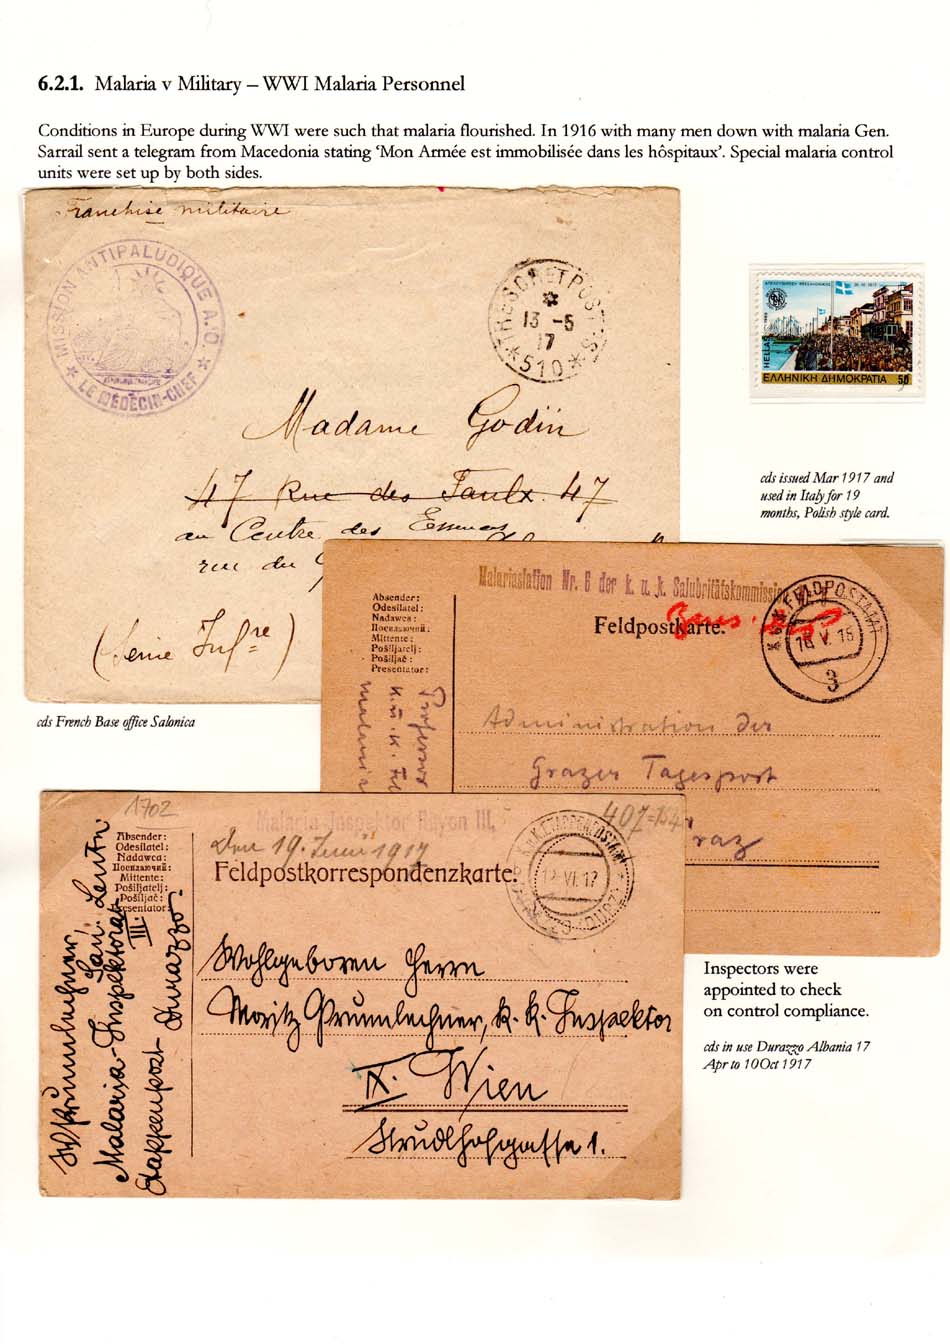 6.2.1. Malaria v Military – WWI Malaria Personnel
Conditions in Europe during WWI were such that malaria flourished. In 1916 with many men down with malaria Gen.
Sarrail sent a telegram from Macedonia stating ‘Mon Armée est immobilisée dans les hôspitaux’. Special malaria control
units were set up by both sides.
Franchise militaire
MISSION ANTIPALUDIQUE A.O.
LE MÉDECIN-CHEF
TRESOR ET POSTES
13 -5
17
*510*
Madame Godin
47 Rue des Faulx 47
au Centre des
rue du
ΕΛΛΗΝΙΚΗ ΔΗΜΟΚΡΑΤΙΑ 50
HELLAS
cds issued Mar 1917 and
used in Italy for 19
months, Polish style card.
cds French Base office Salonica
Malariastation Nr. 6 der k. u. k. Salubritätskommission
Absender:
Odesílatel:
Nadawca:
Посилаючий:
Mittente:
Pošiljatelj:
Pošiljač:
Presentator:
Feldpostkarte.
FELDPOSTAMT
18 V. 18
3
Administration der
Grazer Tagespost
raz
1702
Malaria-Inspektor Rayon III.
407
Den 19. Juni 1917
Absender:
Odesílatel:
Nadawca:
Посилаючий:
Mittente:
Pošiljatelj:
Pošiljač:
Presentator:
Feldpostkorrespondenzkarte.
K.u.K. ETAPPENPOSTAMT
VI. 17
DURAZZO
Malaria-Inspektorat
III.
Etappenpost Durazzo
Wohlgeboren Herrn
Moritz Prumlechner, k. k. Inspektor
IX. Wien
Strudlhofgasse 1.
Inspectors were
appointed to check
on control compliance.
cds in use Durazzo Albania 17
Apr to 10Oct 1917